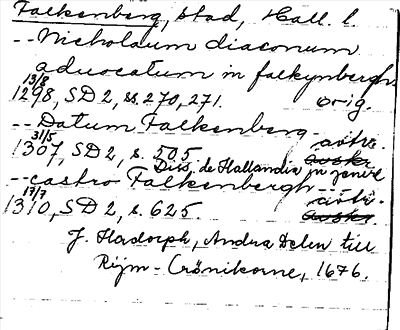 Falkenberg, stad, Hall. l.
-- Nicholaum diaconum
advocatum in falkynbergh.
13/8
1298, SD 2, ss. 270, 271. orig.
-- Datum Falkenberg - avskr.
31/5
1307, SD 2, s. 505.
Diss. de Hallandia
-- castro Falkenbergh -
17/7
1310, SD 2, s. 625.
J. Hadorph, Andra Delen till
Rijm-Crönikorne, 1676.